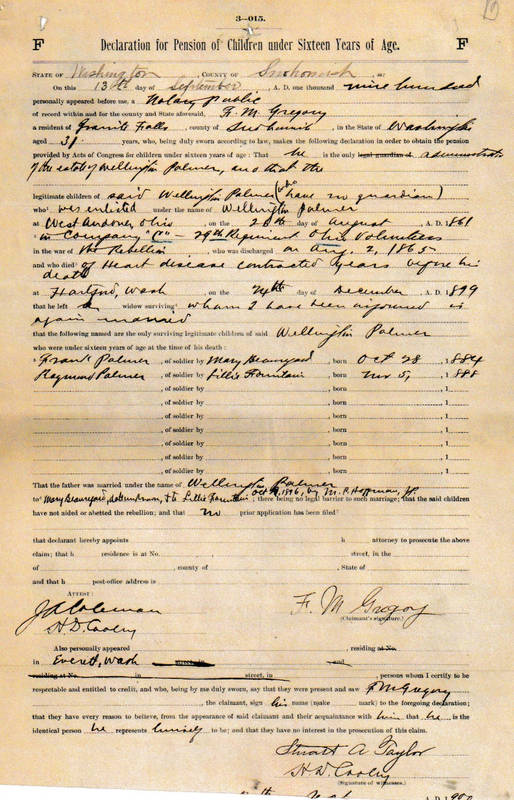 3—015.
F Declaration for Pension of Children under Sixteen Years of Age. F
STATE OF Washington, COUNTY OF Snohomish, ss:
On this 13th day of September, A. D. one thousand nine hundred
personally appeared before me, a Notary public
of record within and for the county and State aforesaid, F. M. Gregory
a resident of Granite Falls, county of Snohomish, in the State of Washington
aged 31 years, who, being duly sworn according to law, makes the following declaration in order to obtain the pension
provided by Acts of Congress for children under sixteen years of age: That he is the only legal guardian of administrator
of the estate of Wellington Palmer, and that the
legitimate children of said Wellington Palmer (who have no guardian)
who was enlisted under the name of Wellington Palmer
at West Andover, Ohio, on the 20th day of August, A. D. 1861
in Company 29th Regiment Ohio Volunteers
in the war of the Rebellion, who was discharged on Aug. 2, 1865
and who died of Heart disease contracted years before his
death
at Hartford, Wash on the 24th day of December, A. D. 1899
that he left a widow surviving whom I have been informed is
again married
that the following named are the only surviving legitimate children of said Wellington Palmer
who were under sixteen years of age at the time of his death:
Frank Palmer, of soldier by Mary Beauregard, born Oct 28, 1884
Raymond Palmer, of soldier by Lillie Fountain, born Nov 5, 1888
, of soldier by , born , 1
, of soldier by , born , 1
, of soldier by , born , 1
, of soldier by , born , 1
, of soldier by , born , 1
That the father was married under the name of Wellington Palmer
to Mary Beauregard, date unknown, & to Lillie Fountain Oct 1886, by M. P. Hoffman, JP.; there being no legal barrier to such marriage; that the said children
have not aided or abetted the rebellion; and that no prior application has been filed
that declarant hereby appoints h attorney to prosecute the above
claim; that h residence is at No. , street, in the
of , county of , State of
and that h post-office address is
ATTEST:
J A Coleman
H. D. Cooley
F. M. Gregory
(Claimant's signature.)
Also personally appeared , residing at No.
in Everett, Wash street, in and
residing at No. in street, in , persons whom I certify to be
respectable and entitled to credit, and who, being by me duly sworn, say that they were present and saw F M Gregory
, the claimant, sign his name (make mark) to the foregoing declaration;
that they have every reason to believe, from the appearance of said claimant and their acquaintance with him that he is the
identical person he represents himself to be; and that they have no interest in the prosecution of this claim.
Stuart A Taylor
H. D. Cooley
(Signature of witnesses.)